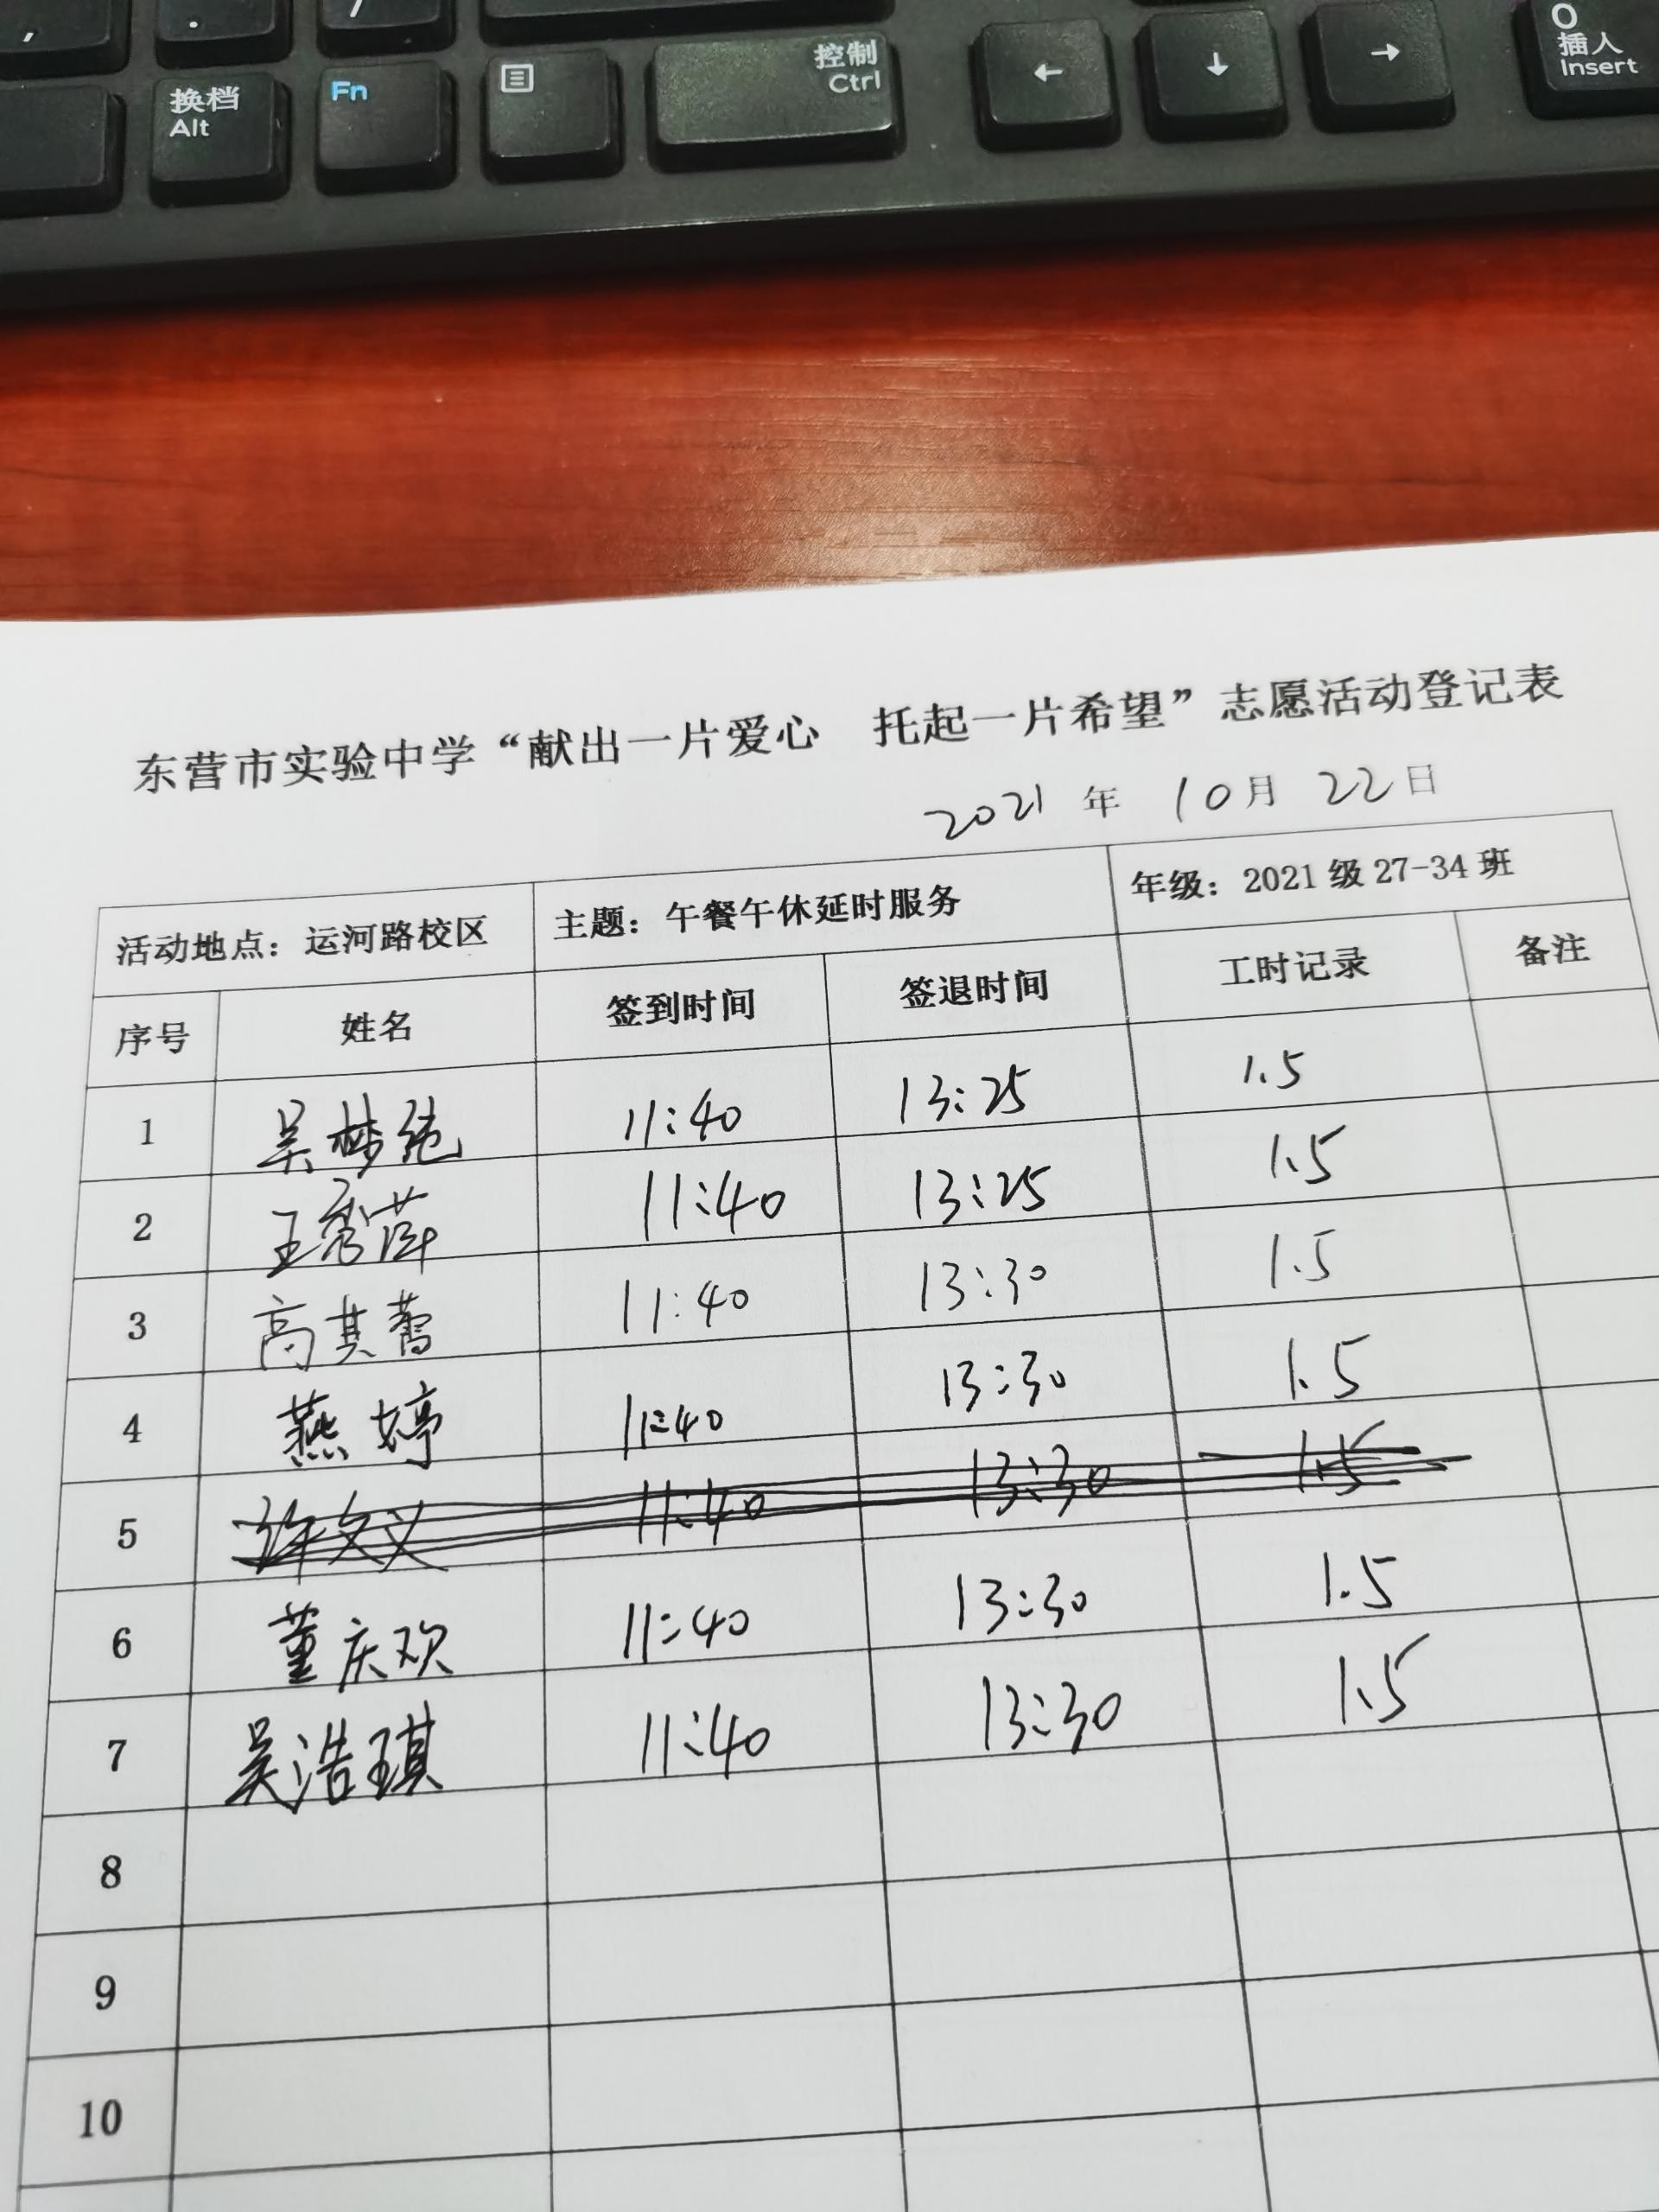 , . /
换档 Alt Fn 控制 Ctrl ← ↓ → 0 插入 Insert
东营市实验中学“献出一片爱心 托起一片希望”志愿活动登记表
2021 年 10 月 22 日
活动地点：运河路校区 主题：午餐午休延时服务 年级：2021 级 27-34 班
序号 姓名 签到时间 签退时间 工时记录 备注
1 吴梦纯 11:40 13:25 1.5
2 王秀萍 11:40 13:25 1.5
3 高其蕾 11:40 13:30 1.5
4 燕婷 11:40 13:30 1.5
5 许文义 11:40 13:30 1.5
6 董庆欢 11:40 13:30 1.5
7 吴浩琪 11:40 13:30 1.5
8
9
10